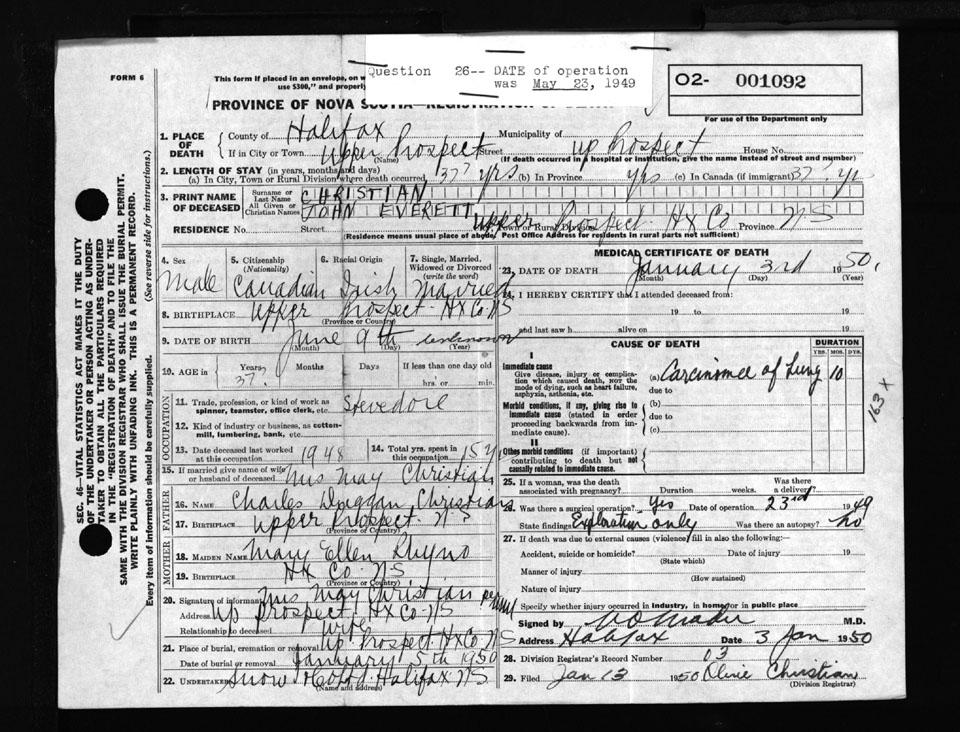 FORM 6
This form if placed in an envelope, on w
use $300," and properly
Question 26-- DATE of operation
was May 23, 1949
O2- 001092
For use of the Department only
PROVINCE OF NOVA SCOTIA—REGISTRATION OF DEATH
1. PLACE OF DEATH
County of Halifax Municipality of
If in City or Town Upper Prospect Street Up Prospect House No.
(Name) (If death occurred in a hospital or institution, give the name instead of street and number)
2. LENGTH OF STAY (in years, months and days)
(a) In City, Town or Rural Division where death occurred, 37 yrs (b) In Province yrs (c) In Canada (if immigrant) 37 yrs
3. PRINT NAME OF DECEASED
Surname or Last Name CHRISTIAN
All Given or Christian Names JOHN EVERETT
RESIDENCE No. Street Upper Prospect Hx Co Province N S
Town or Rural Division
(Residence means usual place of abode. Post Office Address for residents in rural parts not sufficient)
4. Sex 5. Citizenship (Nationality) 6. Racial Origin 7. Single, Married, Widowed or Divorced (write the word)
Male Canadian Irish Married
8. BIRTHPLACE Upper Prospect Hx Co NS
(Province or Country)
9. DATE OF BIRTH June 9th unknown
(Month) (Day) (Year)
10. AGE in Years Months Days If less than one day old
37 hrs. or min.
OCCUPATION
11. Trade, profession, or kind of work as spinner, teamster, office clerk, etc. Stevedore
12. Kind of industry or business, as cotton-mill, lumbering, bank, etc.
13. Date deceased last worked at this occupation 1948 14. Total yrs. spent in this occupation 15 y
15. If married give name of wife or husband of deceased Mrs May Christian
FATHER
16. NAME Charles Christian
17. BIRTHPLACE Upper Prospect N S
(Province or Country)
MOTHER
18. MAIDEN NAME Mary Ellen
19. BIRTHPLACE Hx Co N S
(Province or Country)
20. Signature of informant Mrs May Christian
Address Up Prospect Hx Co NS
Relationship to deceased wife
21. Place of burial, cremation or removal Up Prospect Hx Co NS
Date of burial or removal January 5th 1950
22. Undertaker Snow Halifax NS
(Name and address)
MEDICAL CERTIFICATE OF DEATH
23. DATE OF DEATH January 3rd 1950
(Month) (Day) (Year)
24. I HEREBY CERTIFY that I attended deceased from:
19 to 19
and last saw h alive on 19
CAUSE OF DEATH DURATION
YRS. MOS. DYS.
I
Immediate cause
Give disease, injury or complication which caused death, NOT the mode of dying, such as heart failure, asphyxia, asthenia, etc.
(a) Carcinoma of Lung 10
due to
Morbid conditions, if any, giving rise to immediate cause (stated in order proceeding backwards from immediate cause).
(b)
due to
(c)
163 +
II
Other morbid conditions (if important) contributing to death but not causally related to immediate cause.
25. If a woman, was the death associated with pregnancy? Duration weeks. Was there a delivery?
26. Was there a surgical operation? Yes Date of operation 23rd 1949
State findings Exploration only Was there an autopsy? no
27. If death was due to external causes (violence) fill in also the following:—
Accident, suicide or homicide? Date of injury 19
(State which)
Manner of injury
(How sustained)
Nature of injury
Specify whether injury occurred in industry, in home or in public place
Signed by M.D.
Address Halifax Date 3 Jan 1950
28. Division Registrar's Record Number 03
29. Filed Jan 13 1950 Olive Christian
(Division Registrar)
SEC. 46—VITAL STATISTICS ACT MAKES IT THE DUTY
OF THE UNDERTAKER OR PERSON ACTING AS UNDER-
TAKER TO OBTAIN ALL THE PARTICULARS REQUIRED
IN THE "REGISTRATION OF DEATH" AND TO FILE THE
SAME WITH THE DIVISION REGISTRAR WHO SHALL ISSUE THE BURIAL PERMIT.
WRITE PLAINLY WITH UNFADING INK. THIS IS A PERMANENT RECORD.
Every item of information should be carefully supplied. (See reverse side for instructions.)